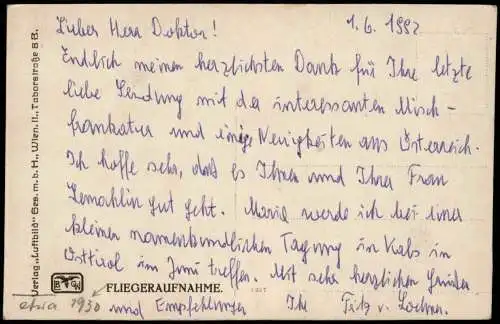 Lieber Herr Doktor! 1.6.1992
Endlich meinen herzlichsten Dank für Ihre letzte
liebe Sendung mit der interessanten Misch-
frankatur und einige Neuigkeiten aus Österreich.
Ich hoffe sehr, daß es Ihnen und Ihrer Frau
Gemahlin gut geht. Maria werde ich bei einer
kleinen namenkundlichen Tagung in Kals in
Osttirol im Juni treffen. Mit sehr herzlichen Grüßen
und Empfehlungen Ihr Fritz v.
FLIEGERAUFNAHME.
etwa 1930
Verlag „Luftbild" Ges. m. b. H., Wien, II., Taborstraße 8 B.